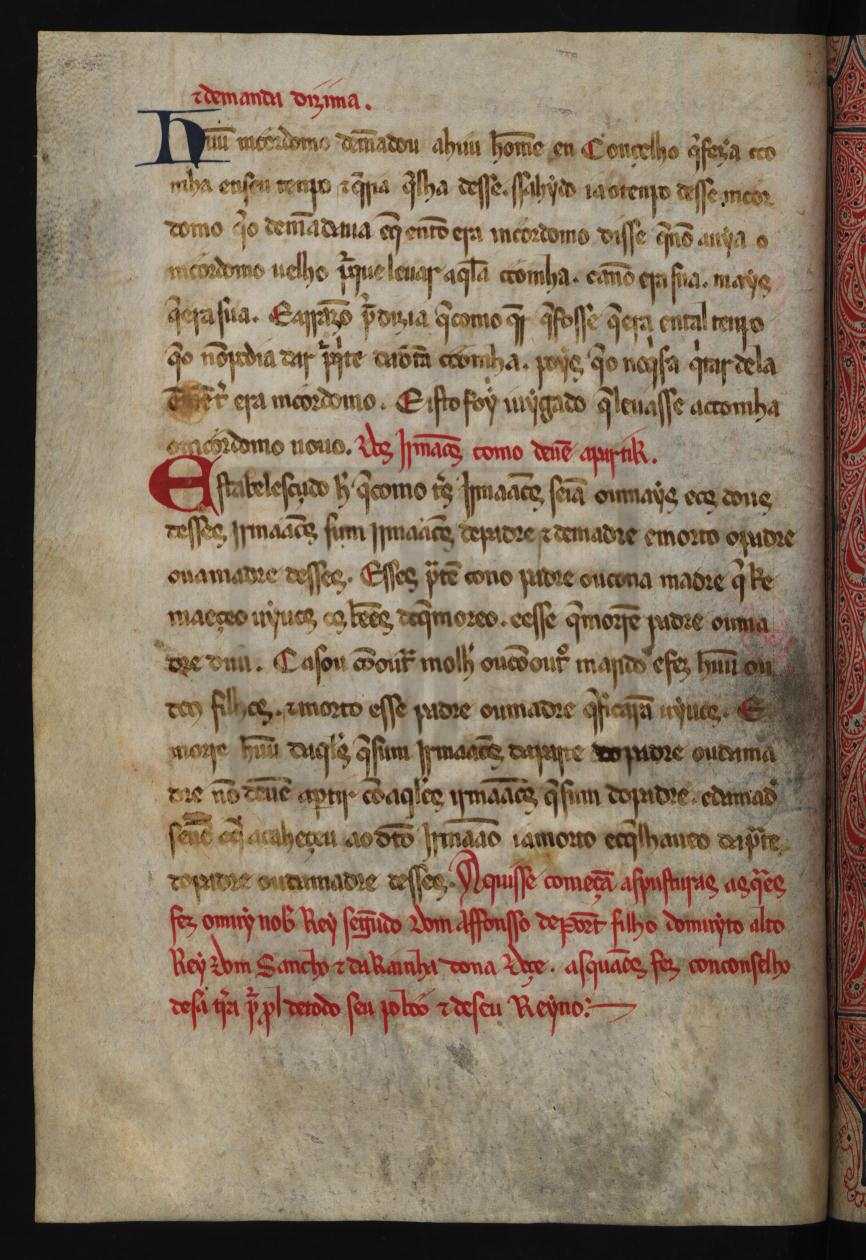 ⁊ demanda dizima.
Huũ mcordomo demãdou ahuu home en Conçelho q̃ feza coo
mha enseu tenpo ⁊ q̃ria q̃ lha desse. ssahydo ia o tenpo desse mcor
domo q̃o demãdaua eq̃ entõ era mcordomo disse q̃ nõ auya o
mcordomo uelho p̃ que leuar aq̃la coomha. ca nõ era sua. mays
q̃ era sua. E arrazõ p̃ dizia q̃ como q̃r q̃ fosse q̃ era ental tenpo
q̃o nõ podia dar p̃te da dita coomha. poys q̃o
era mcordomo. E isto foy iuygado q̃ leuasse a coomha
o mcordomo nouo. Dos Irmãos como deuẽ apartir.
Estabelesçudo h̃ q̃ como tr̃s Irmaãos seiã ou mays eos dous
desses Irmaãos sum Irmaãos de padre ⁊ de madre e morto o padre
ou a madre desses. Esses p̃tẽ cono padre ou cona madre q̃ lhe
maeçeo uyuos os bẽes do q̃ moreo. e esse q̃ morre padre ou ma
dre dun. Casou cõ out̃ molh̃ ou cõ out̃o marido e fez huũ ou
dous filhos. ⁊ morto esse padre ou madre q̃ ficarã uyuos. E
morre huũ daq̃les q̃ sum Irmaãos da parte do padre ou da ma
dre nõ deuẽ apartir cõ aq̃les irmaãos q̃ sum do padre. e da mad̃
senõ eq̃ acaheçeu ao dito Irmaão ia morto eq̃ lha ueo da p̃te
do padre ou da madre desses. Aquisse começã as pusturas as q̃es
fez o muy nob̃ Rey segũdo dom Affonsso de Port̃ filho do muyto alto
Rey dom Sancho ⁊ da Rainha dona Doçe. as quaaes fez con conselho
de sã tr̃a p̃ p̃l de todo seu poboo ⁊ de seu Reyno: